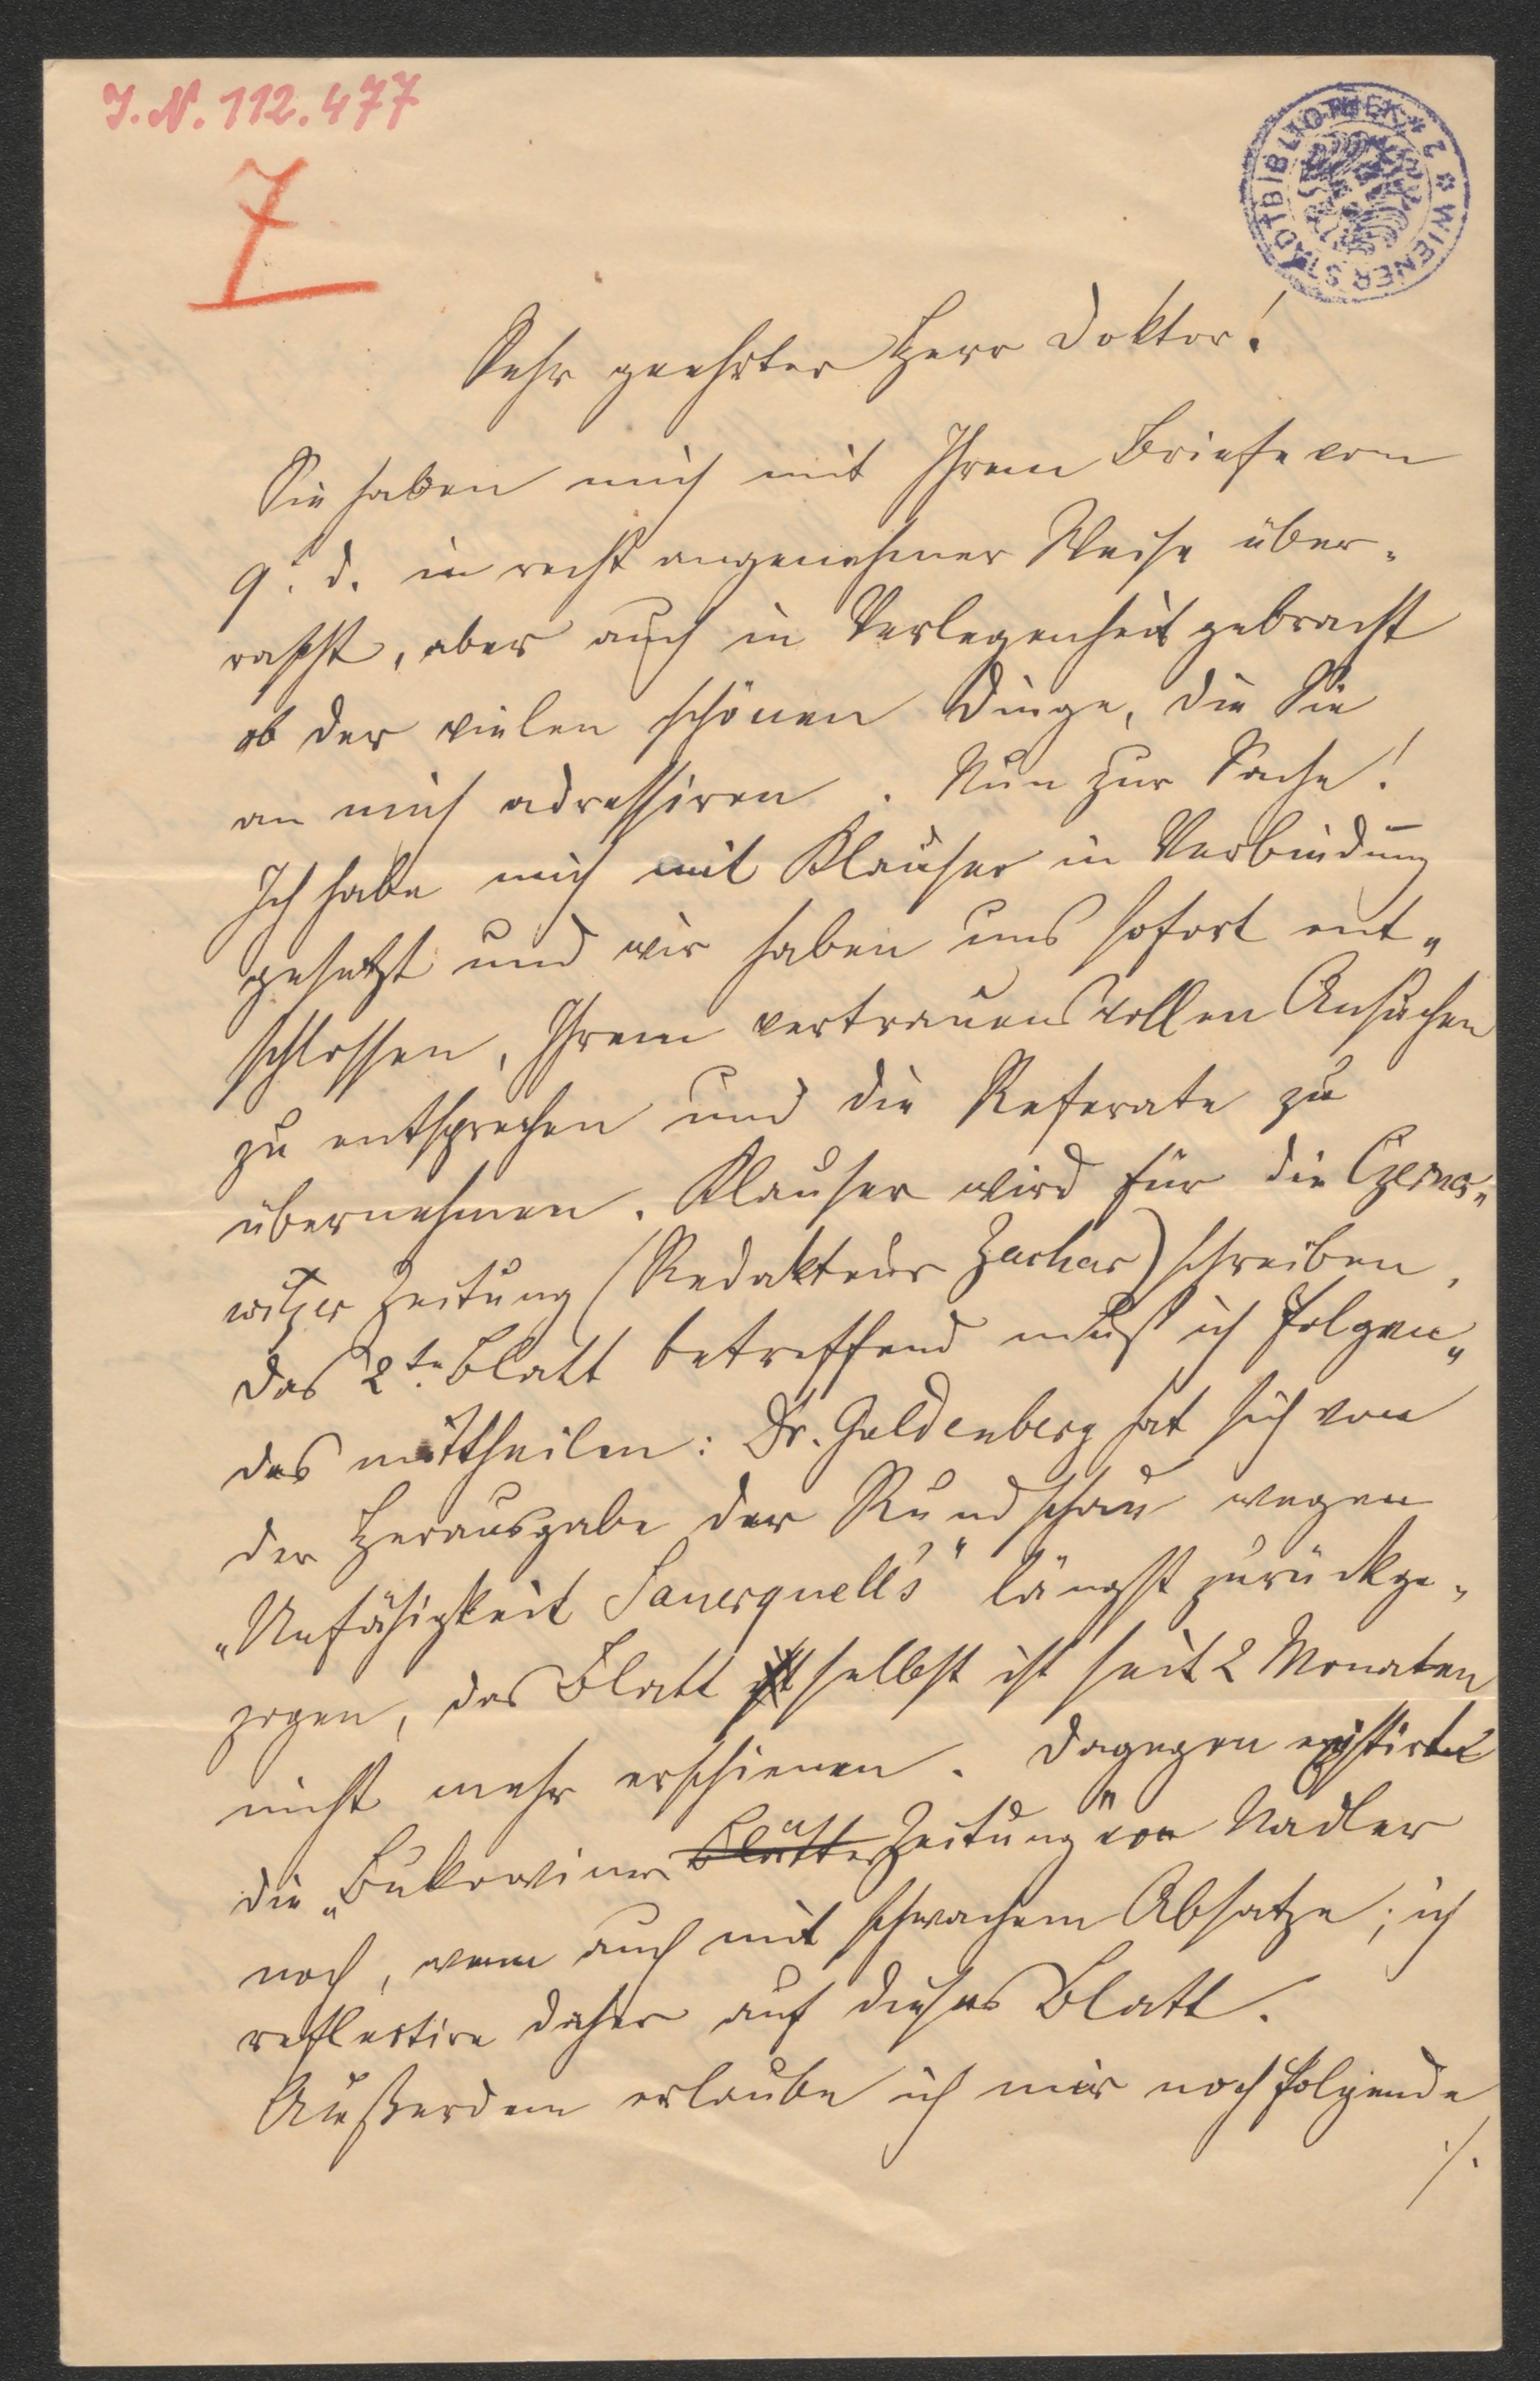 J. N. 112.477
7
WIENER STADTBIBLIOTHEK
Sehr geehrter Herr Doktor!
Sie haben mich mit Ihrem Briefe vom
9. d. in recht angenehmer Weise über-
rascht, aber auch in Verlegenheit gebracht
ob der vielen schönen Dinge, die Sie
an mich adressiren. Nun zur Sache!
Ich habe mich mit Klauser in Verbindung
gesetzt und wir haben uns sofort ent-
schlossen, Ihrem vertrauensvollen Ansuchen
zu entsprechen und die Referate zu
übernehmen. Klauser wird für die Czerno-
witzer Zeitung (Redakteur Zachar) schreiben,
das 2te Blatt betreffend muß ich folgen-
des mittheilen: Dr. Goldenberg hat sich von
der Herausgabe der Rundschau wegen
„Unfähigkeit Sauerquell's" längst zurückge-
zogen, das Blatt ist selbst ist seit 2 Monaten
nicht mehr erschienen. Dagegen existirt
die „Bukowiner Blätter Zeitung" von Nadler
noch, wenn auch mit schwachem Absatze; ich
reflectire daher auf dieses Blatt.
Außerdem erlaube ich mir noch folgende
./.